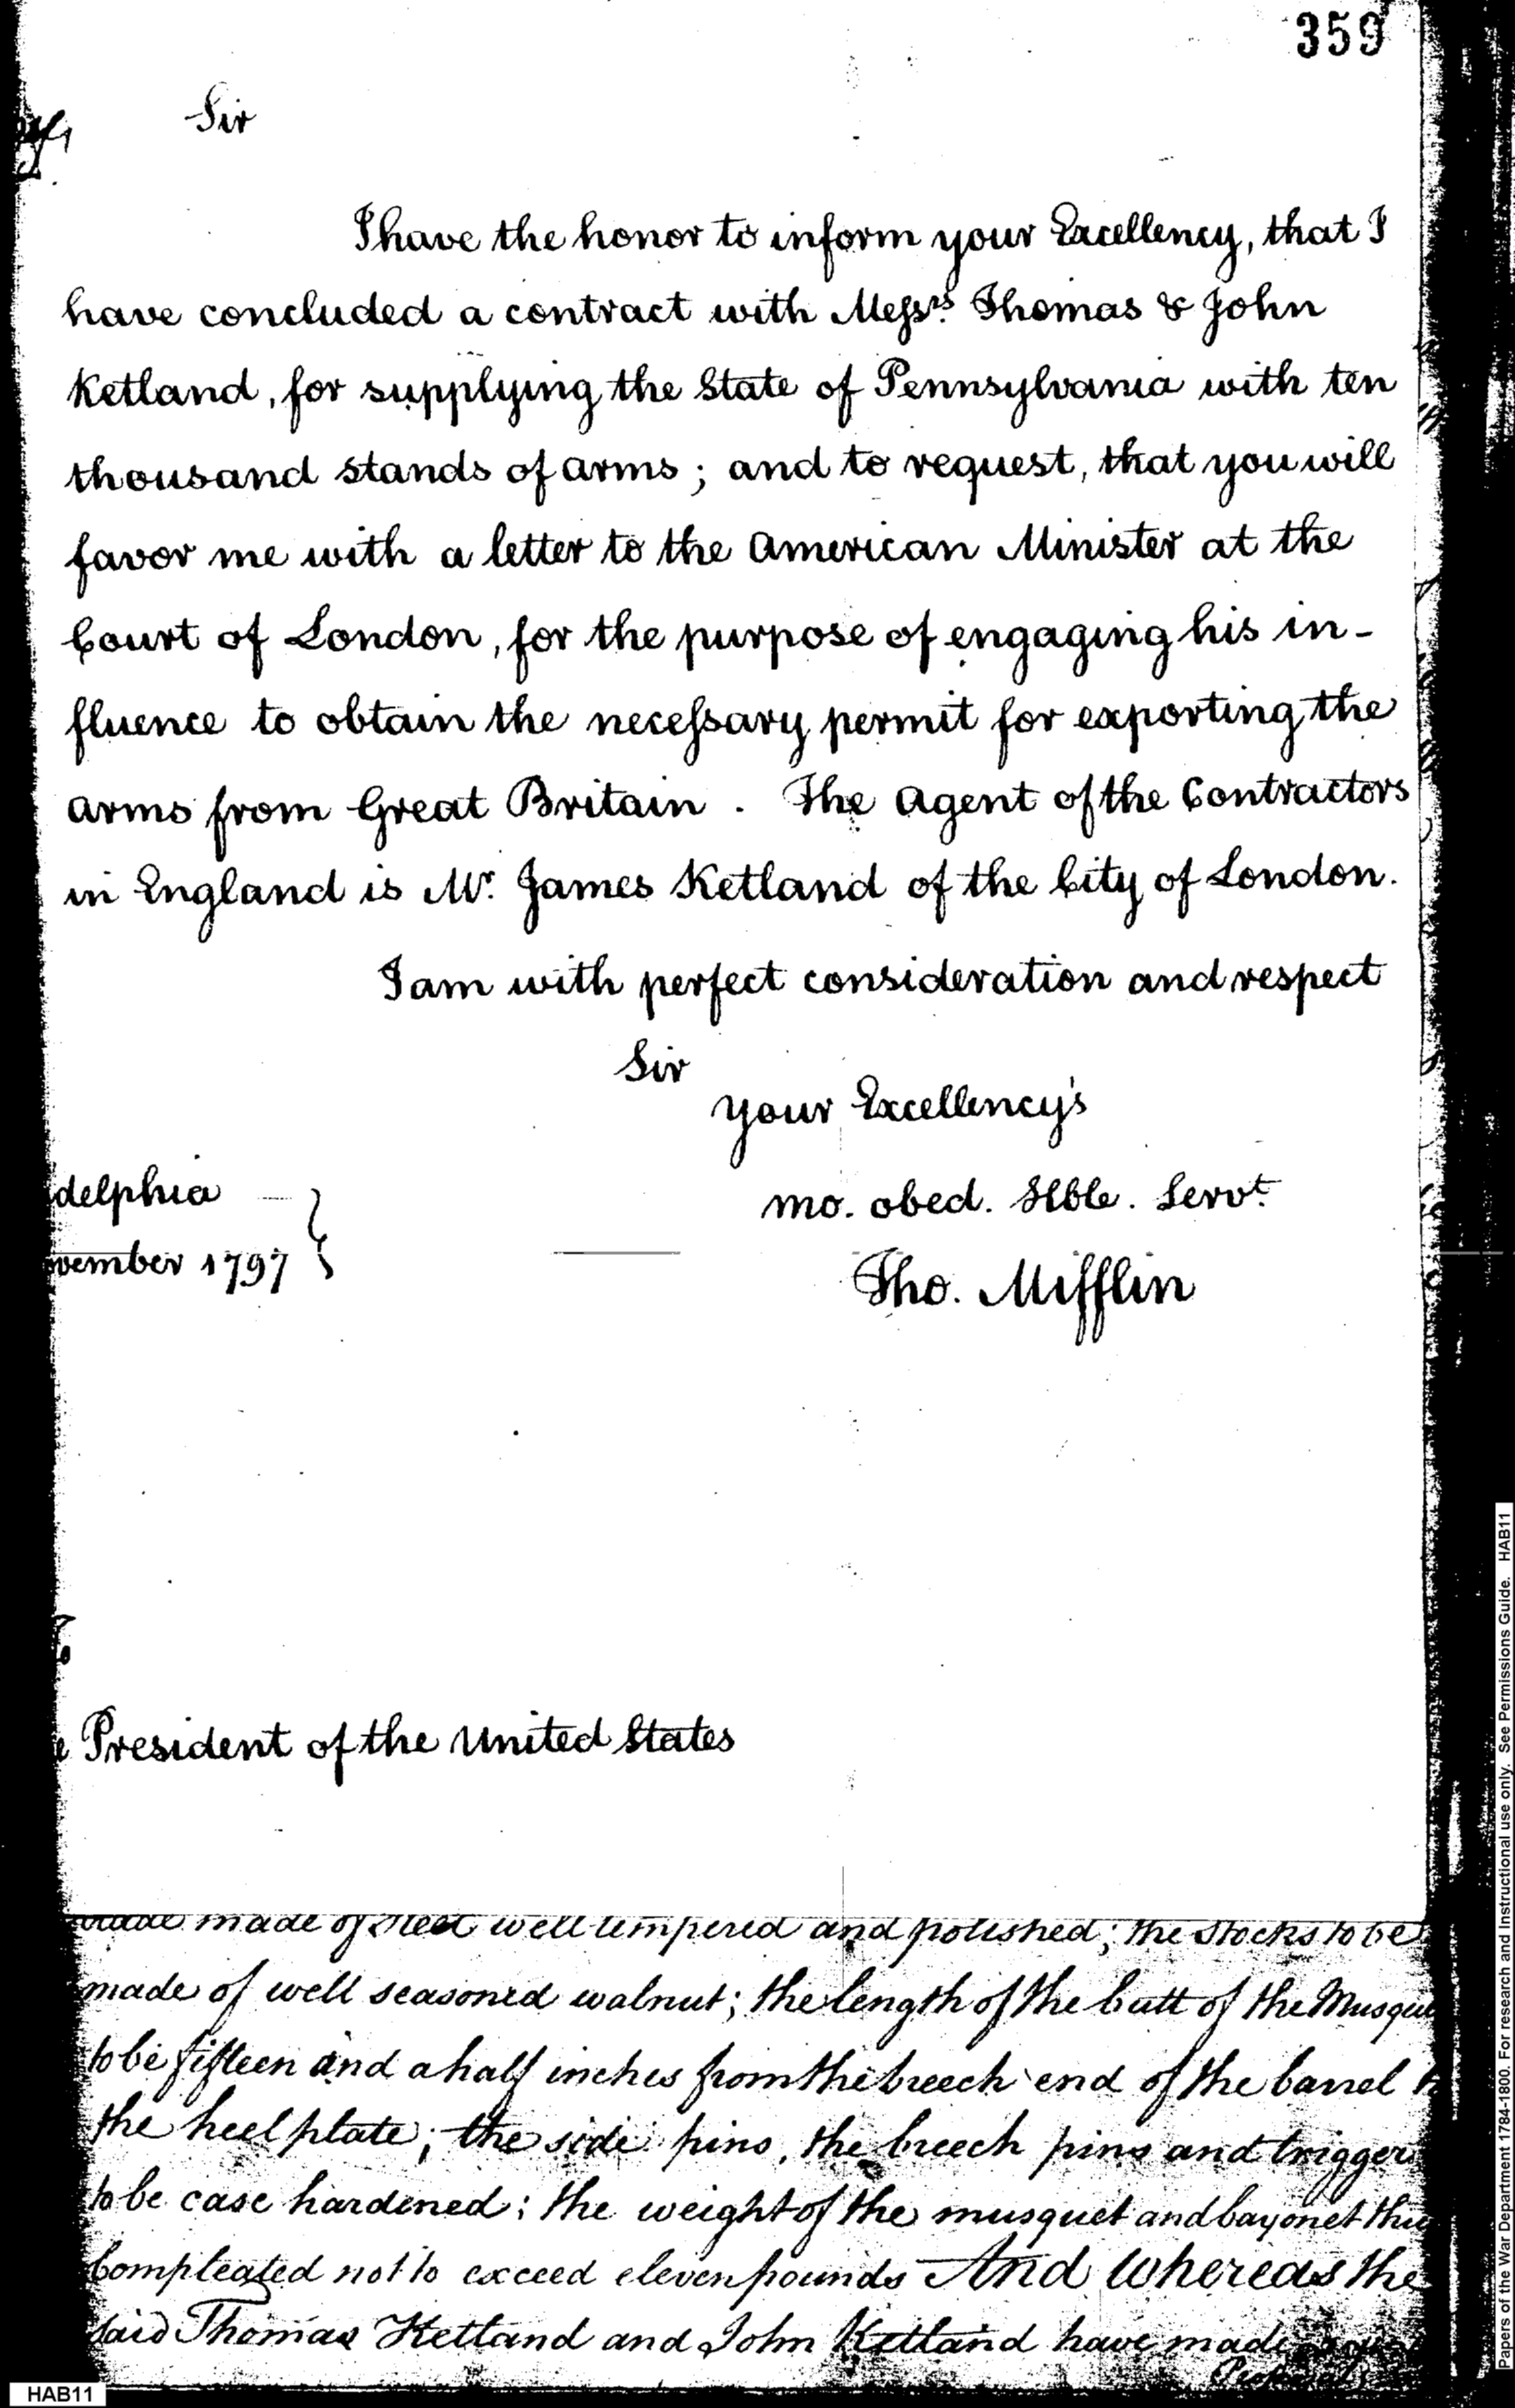 359
Sir
I have the honor to inform your Excellency, that I
have concluded a contract with Messrs. Thomas & John
Ketland, for supplying the State of Pennsylvania with ten
thousand stands of arms; and to request, that you will
favor me with a letter to the American Minister at the
Court of London, for the purpose of engaging his in-
fluence to obtain the necessary permit for exporting the
arms from Great Britain. The Agent of the Contractors
in England is Mr. James Ketland of the City of London.
I am with perfect consideration and respect
Sir
your Excellency's
delphia
mo. obed. Hble. Servt.
vember 1797
Tho. Mifflin
e President of the United States
made of steel well tempered and polished; the stocks to be
made of well seasoned walnut; the length of the butt of the Musque
to be fifteen and a half inches from the breech end of the barrel
the heel plate; the side pins, the breech pins and triggers
to be case hardened; the weight of the musquet and bayonet thu
Compleated not to exceed eleven pounds And Whereas the
said Thomas Ketland and John Ketland have made
HAB11
Papers of the War Department 1784-1800. For research and Instructional use only. See Permissions Guide. HAB11